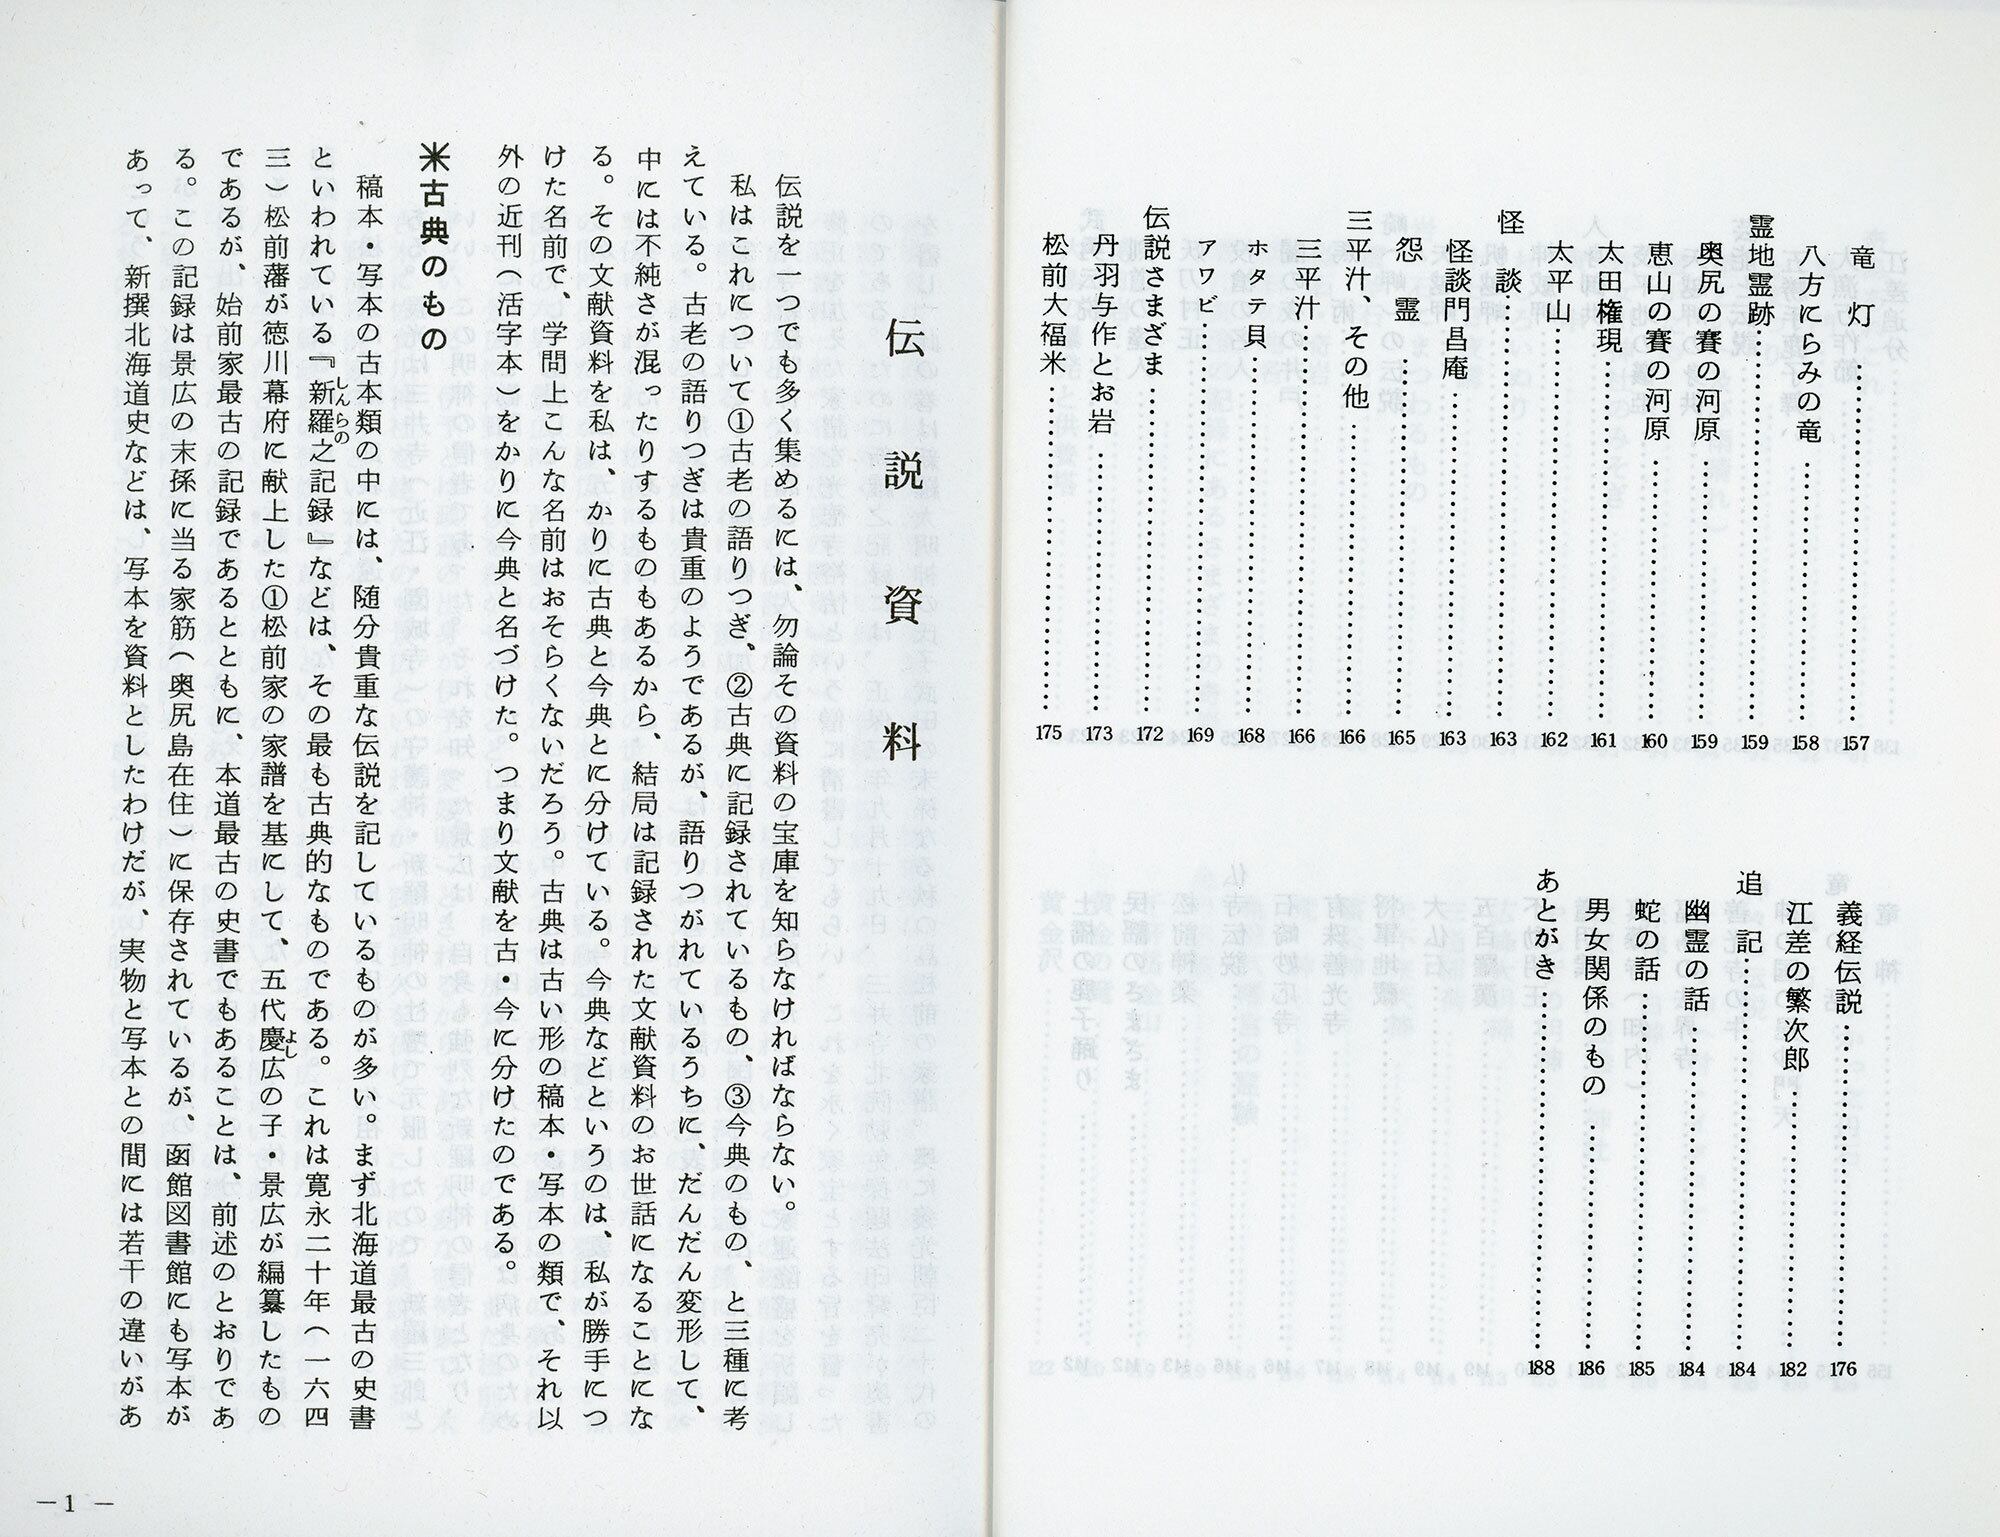 竜　灯……157
八方にらみの竜……158
霊地霊跡……159
奥尻の賽の河原……159
恵山の賽の河原……160
太田権現……161
太平山……162
怪　談……163
怪談門昌庵……163
怨　霊……165
三平汁、その他……166
三平汁……166
ホタテ貝……168
アワビ……169
伝説さまざま……172
丹羽与作とお岩……173
松前大福米……175
義経伝説……176
江差の繁次郎……182
追　記……184
幽霊の話……184
蛇の話……185
男女関係のもの……186
あとがき……188
伝説資料
伝説を一つでも多く集めるには、勿論その資料の宝庫を知らなければならない。
私はこれについて①古老の語りつぎ、②古典に記録されているもの、③今典のもの、と三種に考
えている。古老の語りつぎは貴重のようであるが、語りつがれているうちに、だんだん変形して、
中には不純さが混ったりするものもあるから、結局は記録された文献資料のお世話になることにな
る。その文献資料を私は、かりに古典と今典とに分けている。今典などというのは、私が勝手につ
けた名前で、学問上こんな名前はおそらくないだろう。古典は古い形の稿本・写本の類で、それ以
外の近刊（活字本）をかりに今典と名づけた。つまり文献を古・今に分けたのである。
米古典のもの
稿本・写本の古本類の中には、随分貴重な伝説を記しているものが多い。まず北海道最古の史書
といわれている『新羅之記録』などは、その最も古典的なものである。これは寛永二十年（一六四
しんらの
三）松前藩が徳川幕府に献上した①松前家の家譜を基にして、五代慶広の子・景広が編纂したもの
よし
であるが、始前家最古の記録であるとともに、本道最古の史書でもあることは、前述のとおりであ
る。この記録は景広の末孫に当る家筋（奥尻島在住）に保存されているが、函館図書館にも写本が
あって、新撰北海道史などは、写本を資料としたわけだが、実物と写本との間には若干の違いがあ
— 1 —